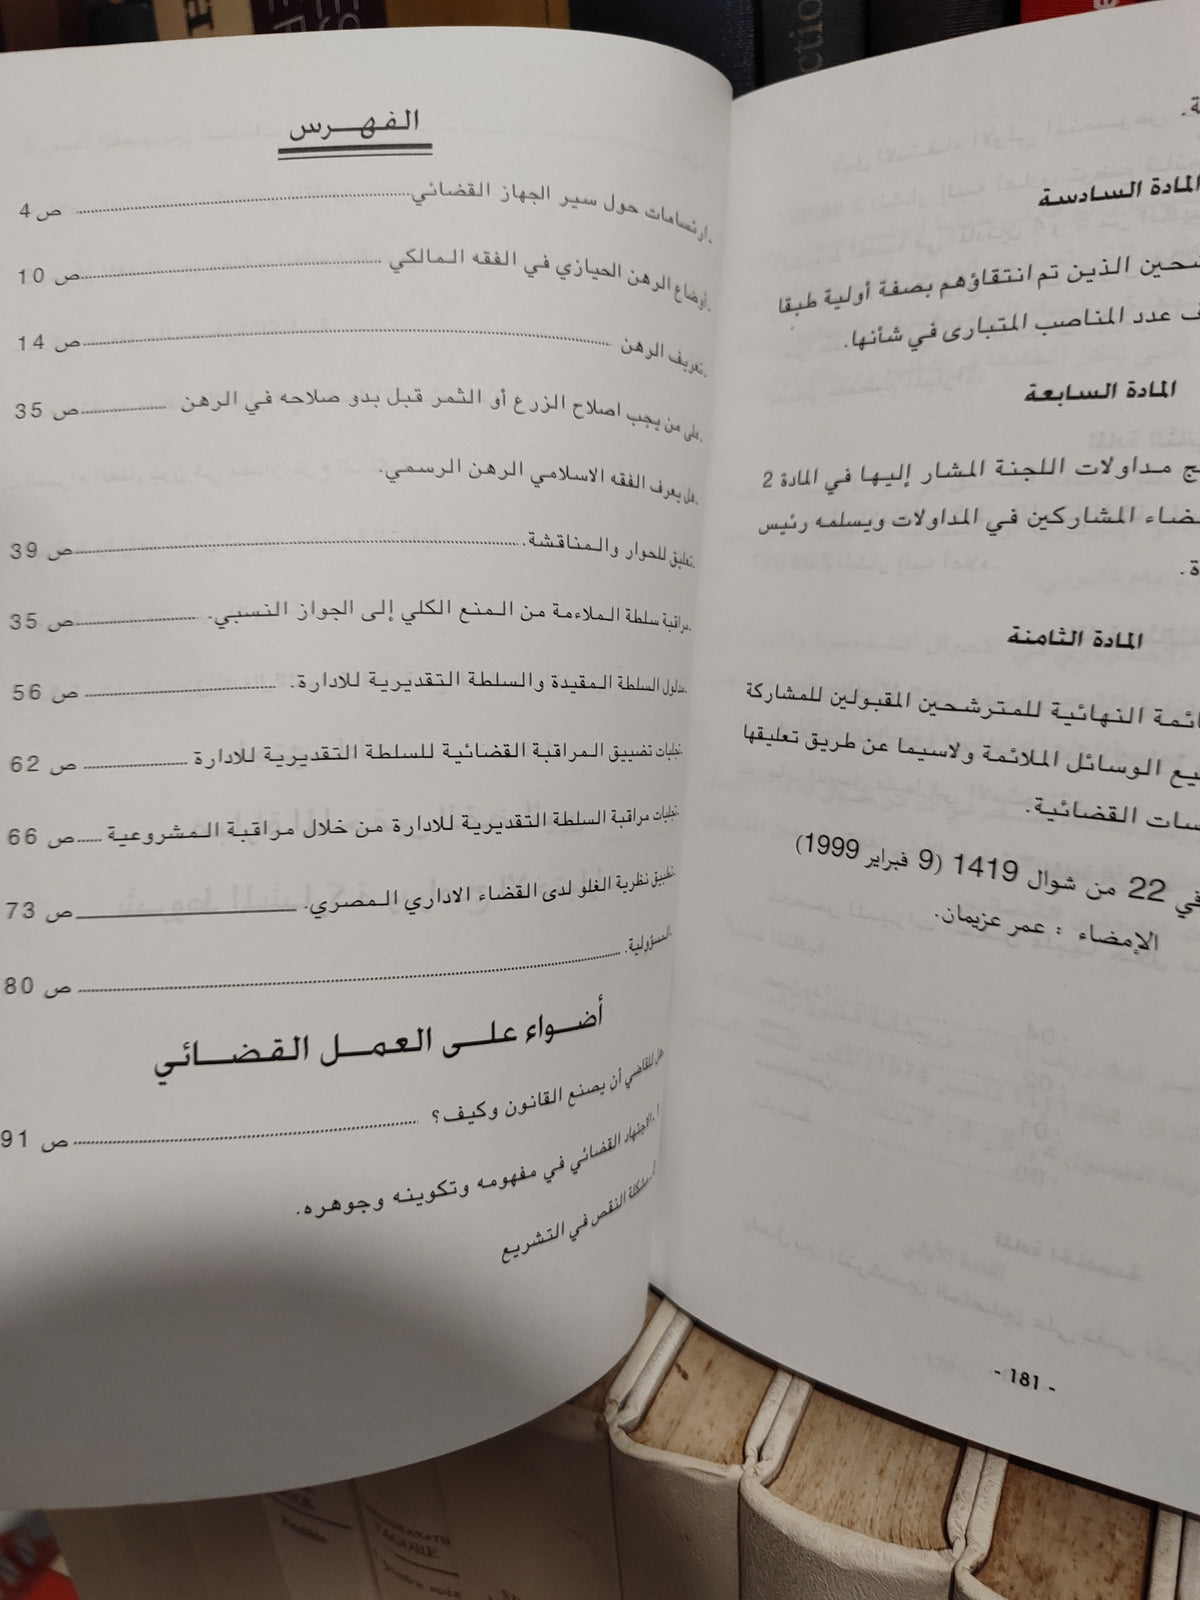 ة.
المادة السادسة
الذين تم انتقاؤهم بصفة أولية طبقا
عدد المناصب المتبارى في شأنها.
المادة السابعة
مداولات اللجنة المشار إليها في المادة 2
المشاركين في المداولات ويسلمه رئيس
ة.
المادة الثامنة
النهائية للمترشحين المقبولين للمشاركة
الوسائل الملائمة ولاسيما عن طريق تعليقها
القضائية.
في 22 من شوال 1419 (9 فبراير 1999)
الإمضاء : عمر عزيمان.
- 181 -
الفهرس
.ارتسامات حول سير الجهاز القضائي ص 4
.أوضاع الرهن الحيازي في الفقه المالكي ص 10
.تعريف الرهن ص 14
.على من يجب اصلاح الزرع أو الثمر قبل بدو صلاحه في الرهن ص 35
.هل يعرف الفقه الاسلامي الرهن الرسمي.
.تعليق للحوار والمناقشة. ص 39
.مراقبة سلطة الملاءمة من المنع الكلي إلى الجواز النسبي. ص 35
.مدلول السلطة المقيدة والسلطة التقديرية للادارة. ص 56
.تجليات تضييق المراقبة القضائية للسلطة التقديرية للادارة ص 62
.تجليات مراقبة السلطة التقديرية للادارة من خلال مراقبة المشروعية ص 66
.تطبيق نظرية الغلو لدى القضاء الاداري المصري. ص 73
.المسؤولية. ص 80
أضواء على العمل القضائي
هل للقاضي أن يصنع القانون وكيف؟ ص 91
الاجتهاد القضائي في مفهومه وتكوينه وجوهره.
مشكلة النقص في التشريع
TAGORE